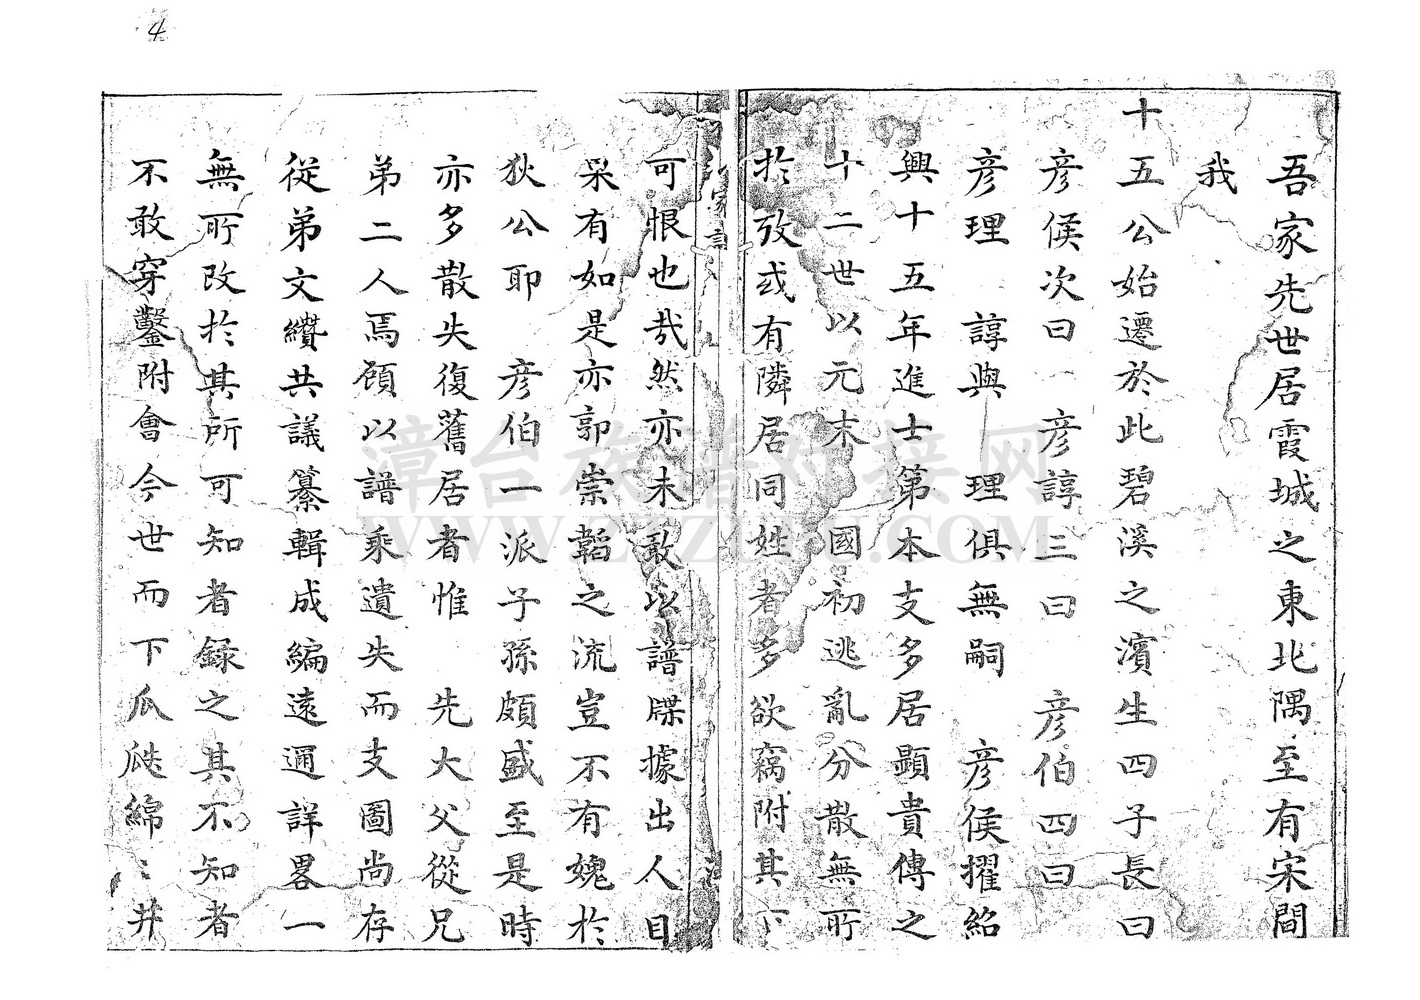 4
吾家先世居霞城之東北隅至有宋間
我
十五公始遷於此碧溪之濱生四子長曰
彦侯次曰 彦諄三曰 彦伯四曰
彦理 諄與 理俱無嗣 彦侯擢紹
興十五年進士第本支多居顯貴傳之
十二世以元末 國初逃亂分散無所
於攷或有隣居同姓者多欲竊附其下
家譜
可恨也哉然亦未敢以譜牒據出人目
果有如是亦郭崇韜之流豈不有媿於
狄公耶 彦伯一派子孫頗盛至是時
亦多散失復舊居者惟 先大父從兄
弟二人焉頋以譜乘遺失而支圖尚存
從弟文纘共議纂輯成編遠邇詳畧一
無所改於其所可知者録之其不知者
不敢穿鑿附會今世而下瓜瓞綿〻井
漳台族谱对接网